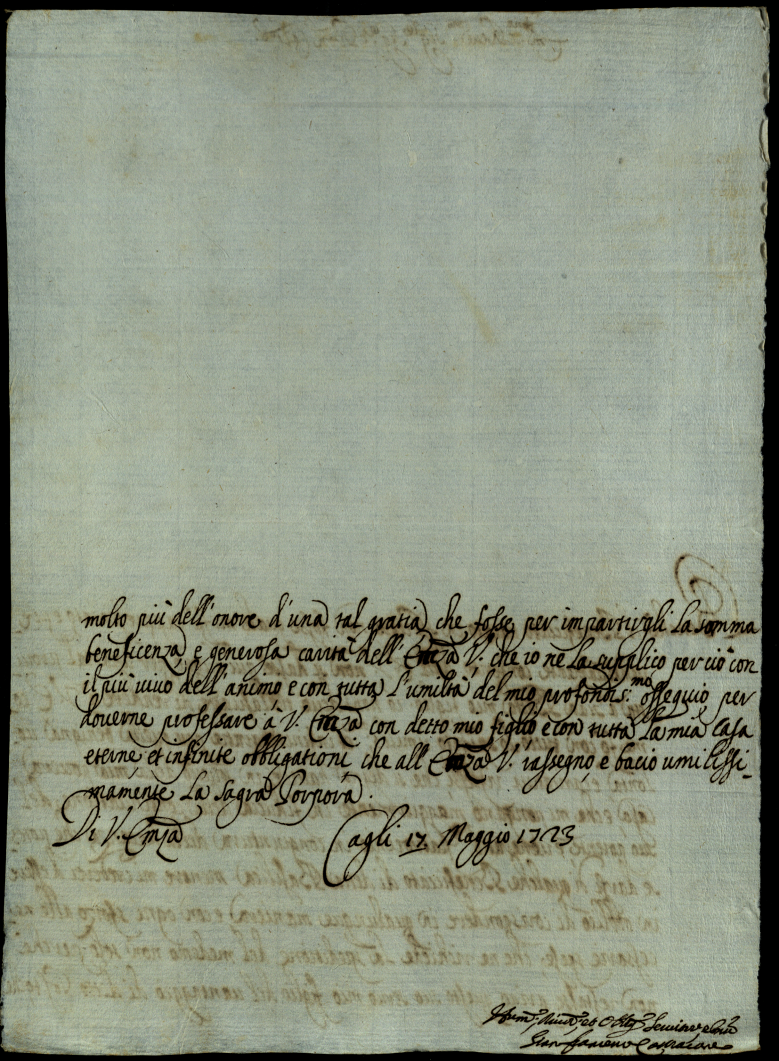 molto più dell'onore d'una tal gratia, che fosse per impartirgli la somma
beneficenza, e generosa carità dell'Emza V. che io ne la supplico perciò con
il più vivo dell'animo e con tutta l'umiltà del mio profondis:mo ossequio per
doverne professare à V. Emza con detto mio figlio e con tutta la mia casa
eterne et infinite obbligationi che all'Emza V. rassegno, e bacio umilissi-
mamente la sagra Porpora.
Di V. Emza
Cagli 17 Maggio 1723